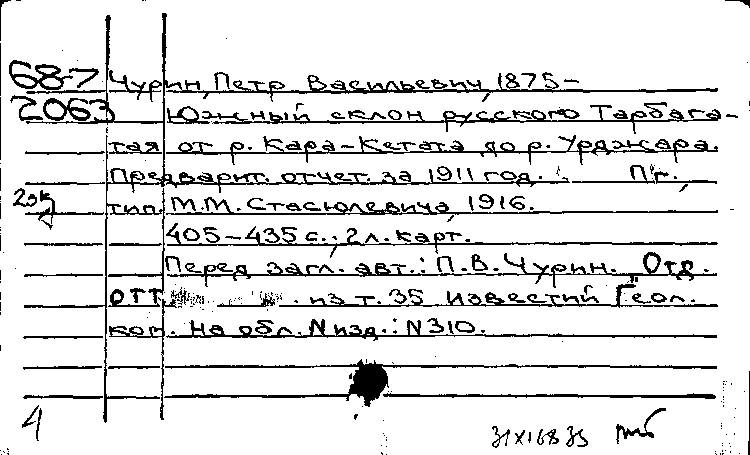 68-7 Чурин, Петр Васильевич, 1875-
2063 Южный склон русского Тарбага-
тая от р. Кара-Кетата до р. Урджара.
Предварит. отчет. за 1911 год. Пг.,
2эк тип. М.М. Стасюлевича, 1916.
405-435 с.; 2 л. карт.
Перед загл. авт.: П.В. Чурин. Отд.
отт. из т. 35 известий Геол.
ком. На обл. N изд.: N310.
4
31X168 35